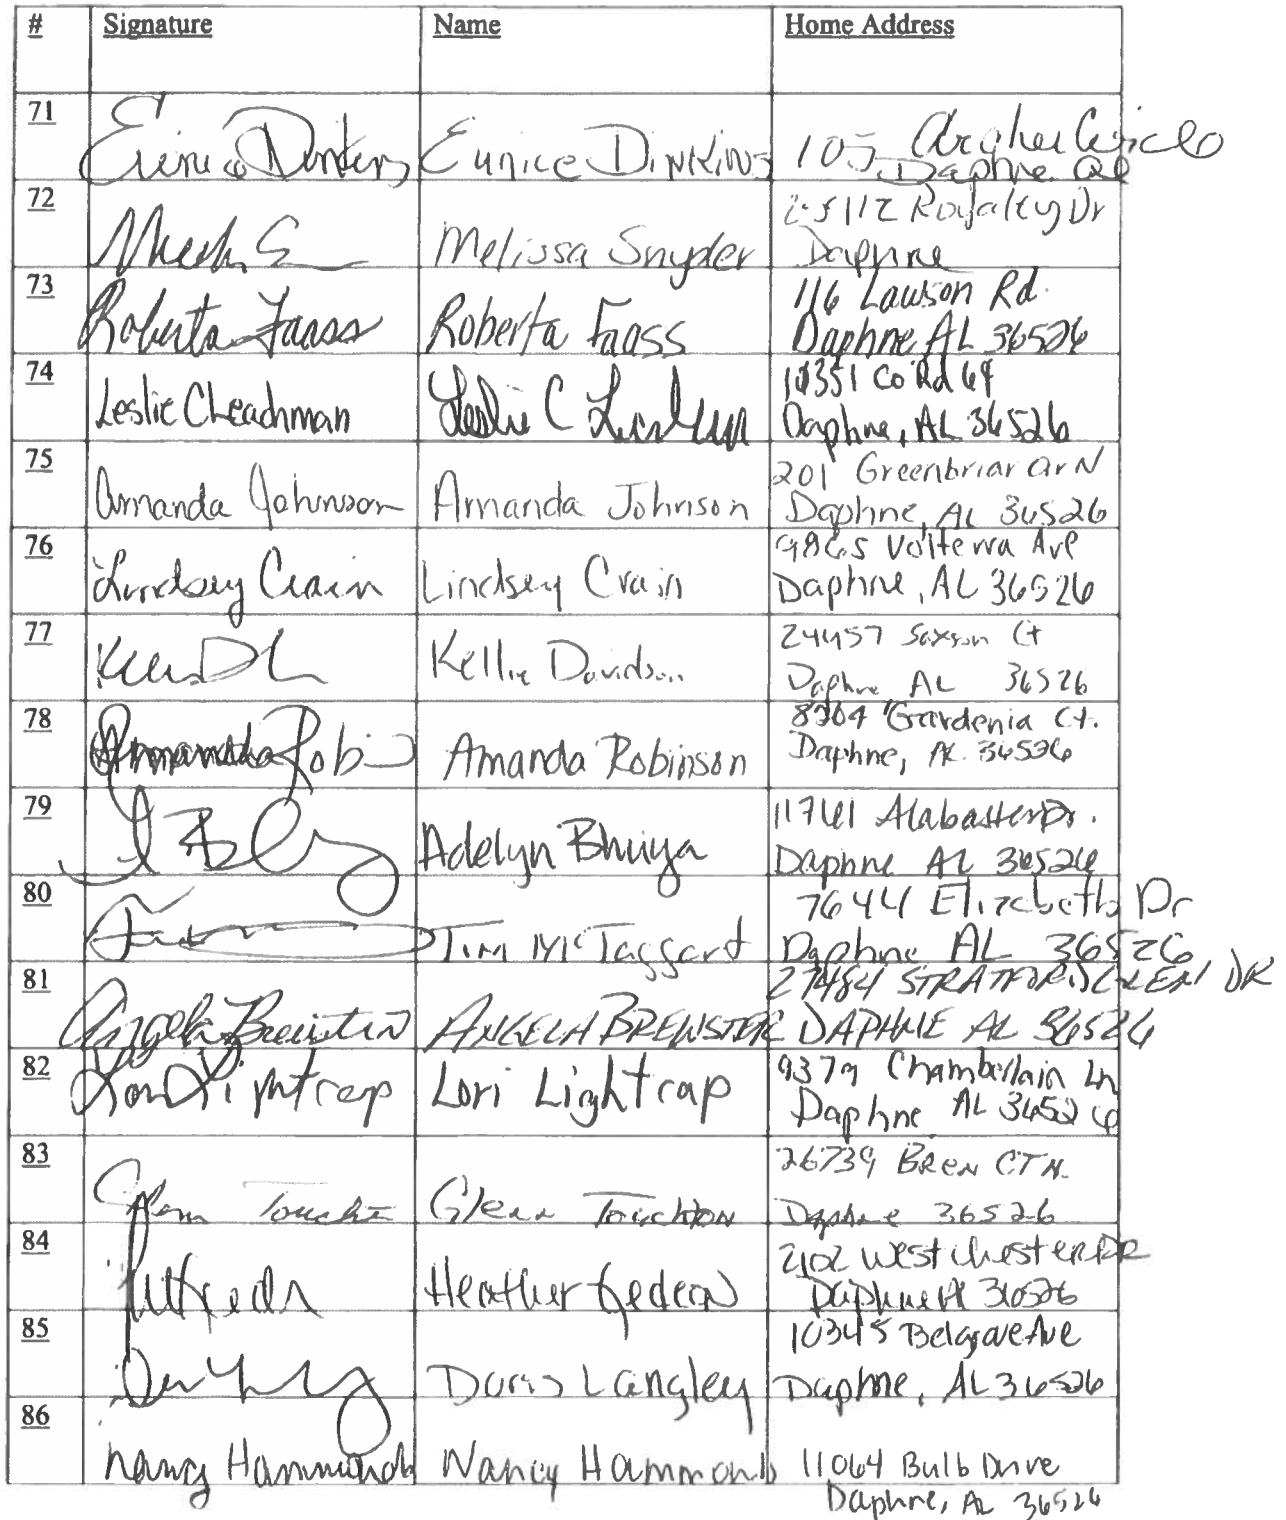 # Signature Name Home Address
71 Eunice Dinkins Eunice Dinkins 105 Archer Circle
Daphne Al
72 Melissa Snyder Royalty Dr
Daphne
73 Roberta Faass Roberta Faass 116 Lawson Rd.
Daphne, AL 36526
74 Leslie C Leachman Leslie C 10351 Co Rd 64
Daphne, AL 36526
75 Amanda Johnson Amanda Johnson 201 Greenbriar Cir N
Daphne, AL 36526
76 Lindsey Crain Lindsey Crain 9865 Volterra Ave
Daphne, AL 36526
77 Kellie Davidson 24457 Saxson Ct
Daphne AL 36526
78 Amanda Amanda Robinson 8304 Gardenia Ct.
Daphne, AL 36526
79 Adelyn Bhuiya 11741 Alabaster Dr.
Daphne AL 36526
80 Tim McTaggart 7644 Elizabeth Dr
Daphne AL 36526
81 Angela Brewster ANGELA BREWSTER 27484 STRATFORD GLEN DR
DAPHNE AL 36526
82 Lori Lightcap Lori Lightcap 9379 Chamberlain Ln
Daphne AL 36526
83 Glenn Touchton Glenn Touchton 26739 BREN CT N.
Daphne 36526
84 Heather 2102 Westchester DR
Daphne Al 36526
85 Doris Langley 10345 Belgrave Ave
Daphne, AL 36526
86 Nancy Hammonds Nancy Hammonds 11064 Bulb Drive
Daphne, AL 36526